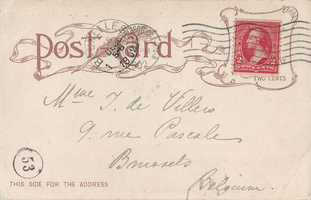 Post Card
TWO CENTS
Mme J. de Villers
9. rue Pascale
Brussels
Belgium.
53
THIS SIDE FOR THE ADDRESS